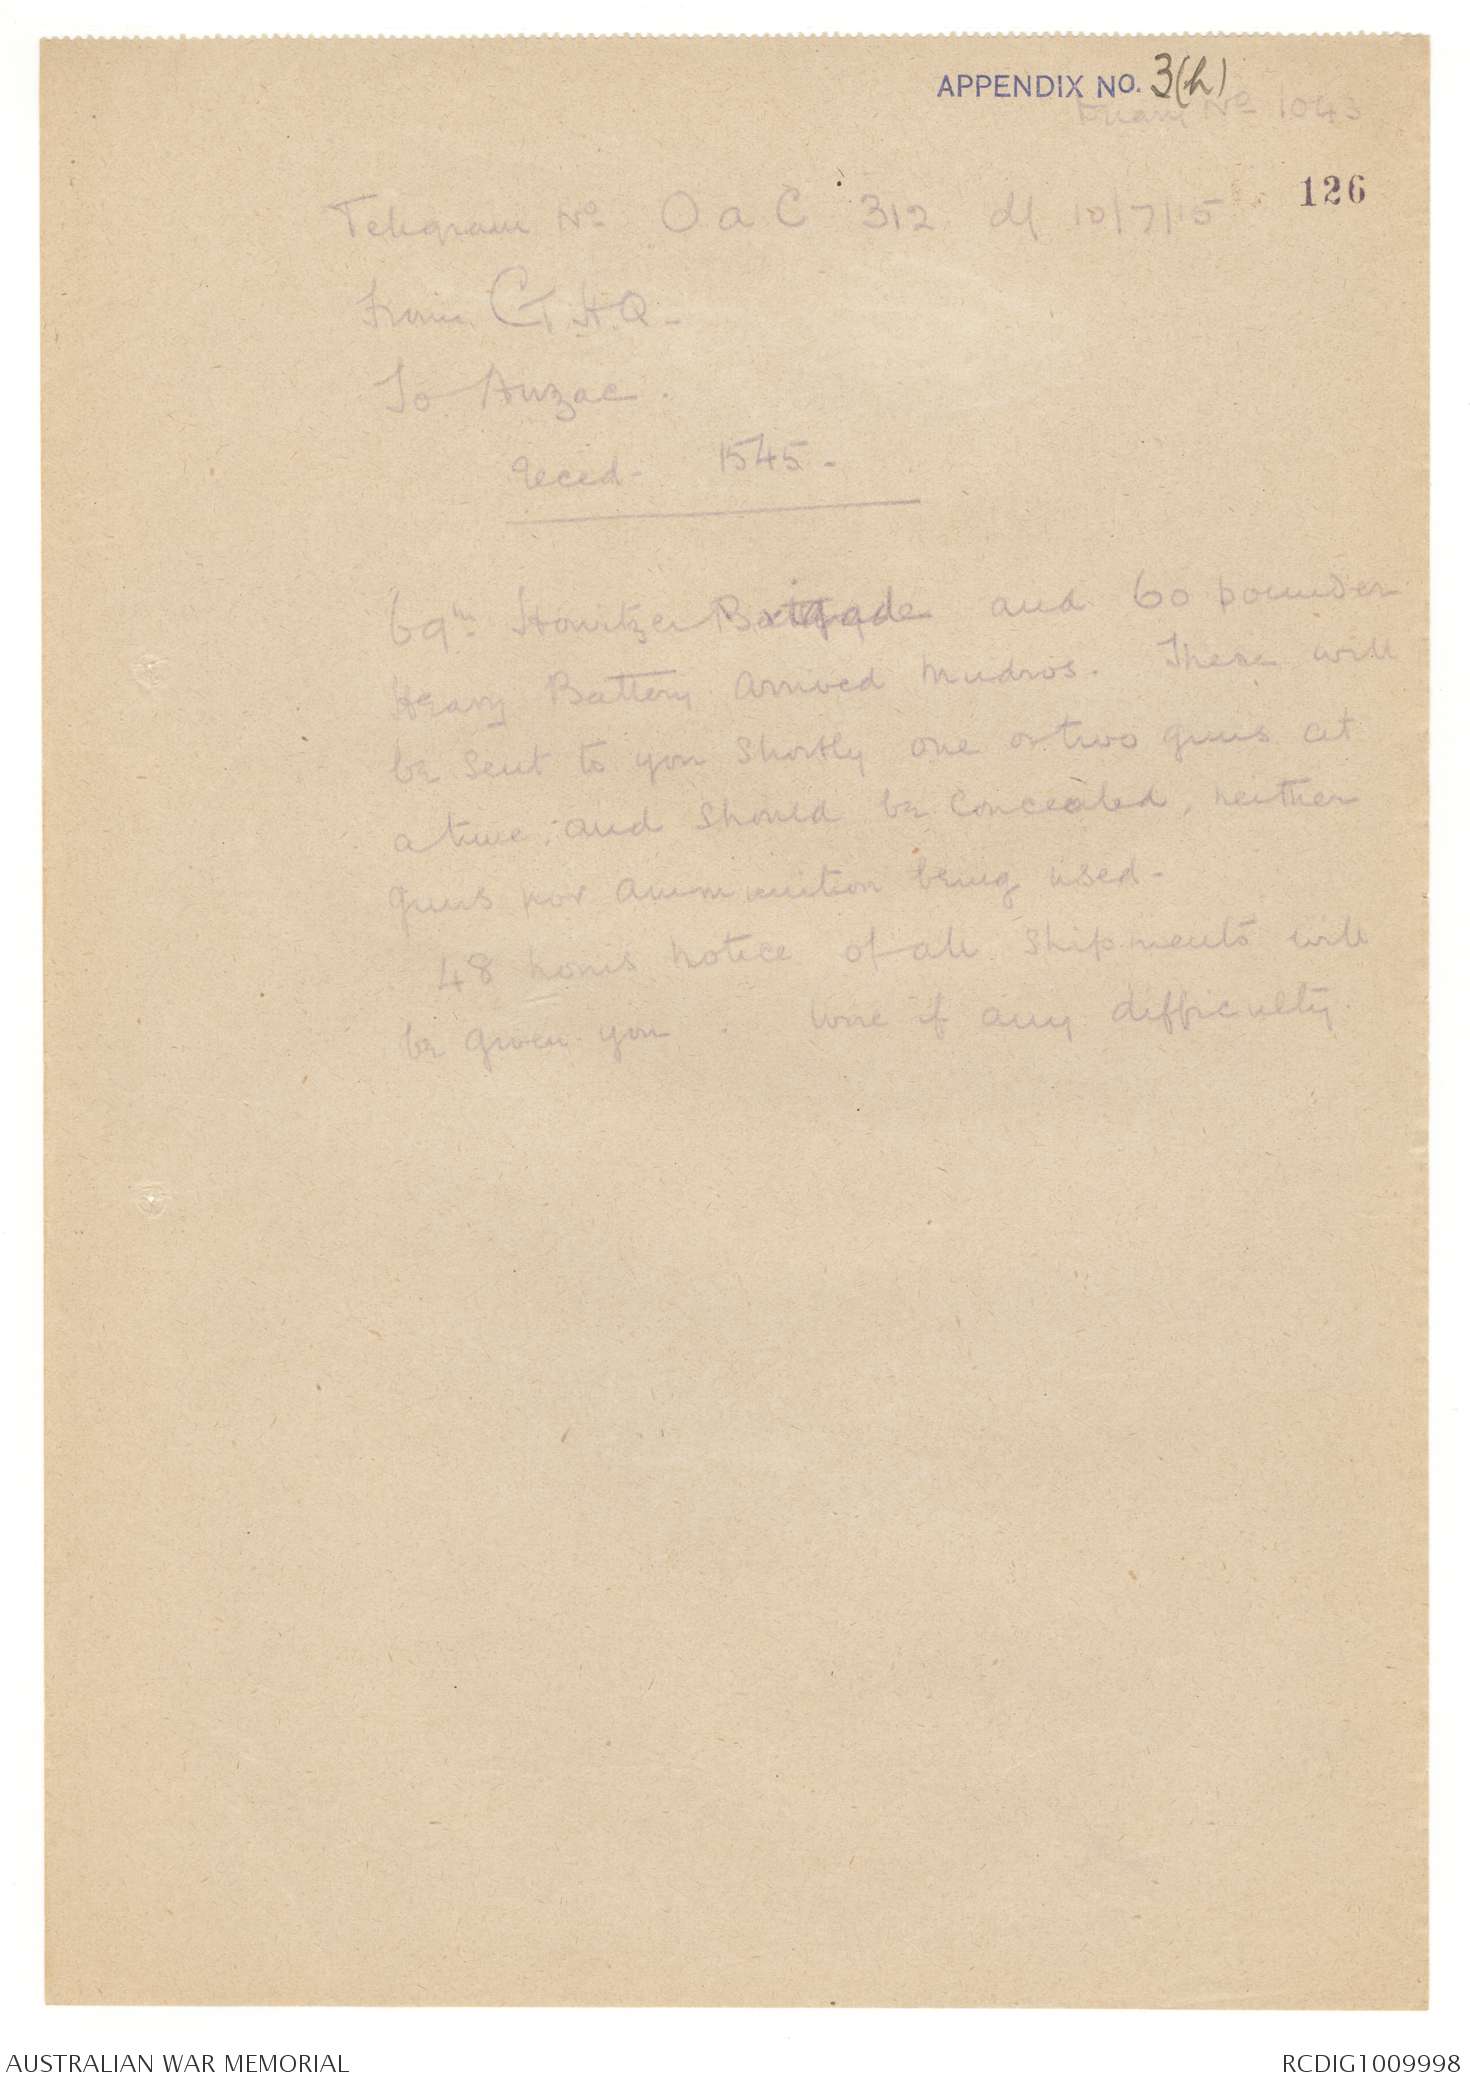 APPENDIX NO. 3(h)
Diary No 1043
126
Telegram No O a C 312 d/ 10/7/15
From G.H.Q.-
To Anzac.
recd- 1545-
69th Howitzer Brigade and 60 pounder
Heavy Battery arrived Mudros. These will
be sent to you shortly one or two guns at
a time, and should be concealed, neither
guns nor ammunition being used-
48 hours notice of all shipments will
be given you. Wire if any difficulty.
AUSTRALIAN WAR MEMORIAL
RCDIG1009998